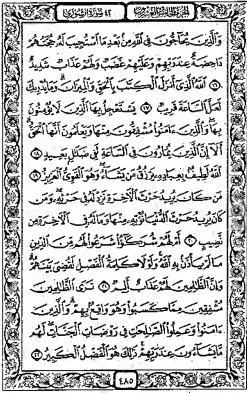 الجزء الخامس والعشرون ٤٢ سورة الشورى
وَالَّذِينَ يُحَاجُّونَ فِي اللَّهِ مِنْ بَعْدِ مَا اسْتُجِيبَ لَهُ حُجَّتُهُمْ
دَاحِضَةٌ عِندَ رَبِّهِمْ وَعَلَيْهِمْ غَضَبٌ وَلَهُمْ عَذَابٌ شَدِيدٌ
١٦ اللَّهُ الَّذِي أَنزَلَ الْكِتَٰبَ بِالْحَقِّ وَالْمِيزَانَ وَمَا يُدْرِيكَ
لَعَلَّ السَّاعَةَ قَرِيبٌ ١٧ يَسْتَعْجِلُ بِهَا الَّذِينَ لَا يُؤْمِنُونَ
بِهَا وَالَّذِينَ ءَامَنُوا مُشْفِقُونَ مِنْهَا وَيَعْلَمُونَ أَنَّهَا الْحَقُّ
أَلَا إِنَّ الَّذِينَ يُمَارُونَ فِي السَّاعَةِ لَفِي ضَلَٰلٍ بَعِيدٍ ١٨
اللَّهُ لَطِيفٌ بِعِبَادِهِ يَرْزُقُ مَن يَشَاءُ وَهُوَ الْقَوِيُّ الْعَزِيزُ ١٩
مَن كَانَ يُرِيدُ حَرْثَ الْآخِرَةِ نَزِدْ لَهُ فِي حَرْثِهِ وَمَن
كَانَ يُرِيدُ حَرْثَ الدُّنْيَا نُؤْتِهِ مِنْهَا وَمَا لَهُ فِي الْآخِرَةِ مِن
نَّصِيبٍ ٢٠ أَمْ لَهُمْ شُرَكَٰٓؤُا شَرَعُوا لَهُم مِّنَ الدِّينِ
مَا لَمْ يَأْذَن بِهِ اللَّهُ وَلَوْلَا كَلِمَةُ الْفَصْلِ لَقُضِيَ بَيْنَهُمْ
وَإِنَّ الظَّٰلِمِينَ لَهُمْ عَذَابٌ أَلِيمٌ ٢١ تَرَى الظَّٰلِمِينَ
مُشْفِقِينَ مِمَّا كَسَبُوا وَهُوَ وَاقِعٌ بِهِمْ وَالَّذِينَ
ءَامَنُوا وَعَمِلُوا الصَّٰلِحَٰتِ فِي رَوْضَاتِ الْجَنَّاتِ لَهُم
مَّا يَشَاءُونَ عِندَ رَبِّهِمْ ذَٰلِكَ هُوَ الْفَضْلُ الْكَبِيرُ ٢٢
٤٨٥